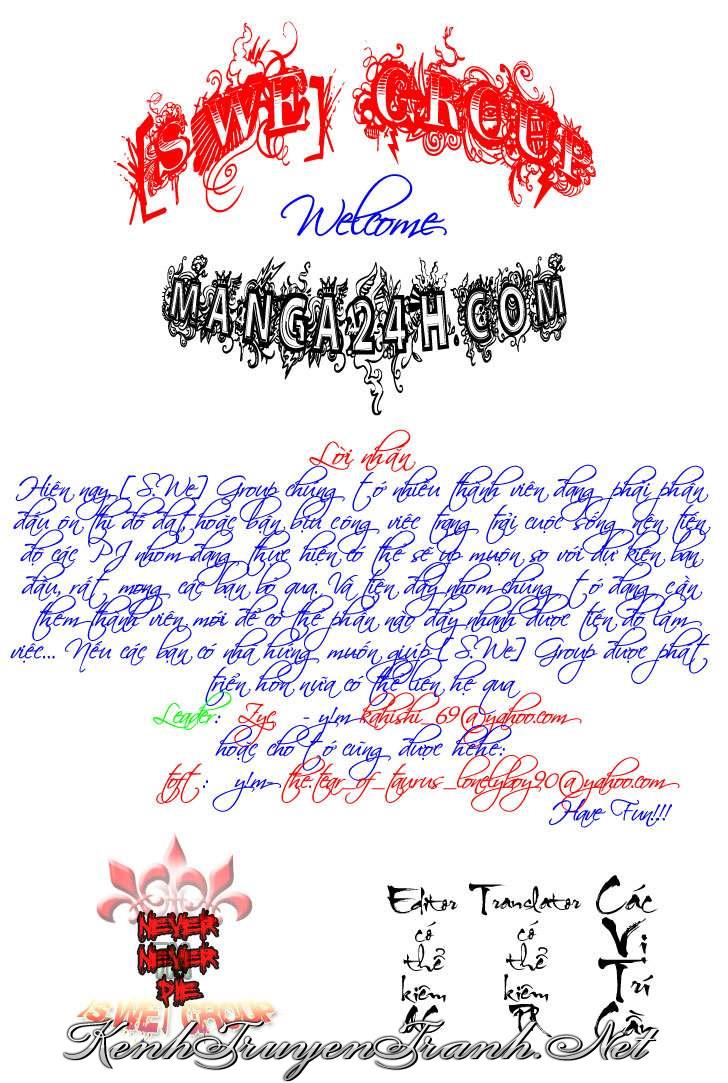 [S.WE] GROUP
Welcome
MANGA24H.COM
Lời nhắn
Hiện nay [S.We] Group chúng tớ nhiều thành viên đang phải phấn
đấu ôn thi đỗ đạt hoặc bận bịu công việc trang trải cuộc sống nên tiến
độ các PJ nhóm đang thực hiện có thể sẽ up muộn so với dự kiến ban
đầu, rất mong các bạn bỏ qua. Và tiện đây nhóm chúng tớ đang cần
thêm thành viên mới để có thể phần nào đẩy nhanh được tiến độ làm
việc... Nếu các bạn có nhã hứng muốn giúp [S.We] Group được phát
triển hơn nữa có thể liên hệ qua
Leader: Zyc - y!m kahishi_69@yahoo.com
hoặc cho tớ cũng được hehe:
toft : y!m- the.tear_of_taurus_lonelyboy90@yahoo.com
Have Fun!!!
Editor Translator Các
có có Vị
thể thể Trí
kiêm kiêm Cần
NEVER
NEVER
DIE
[S.WE] GROUP
KenhTruyenTranh.Net